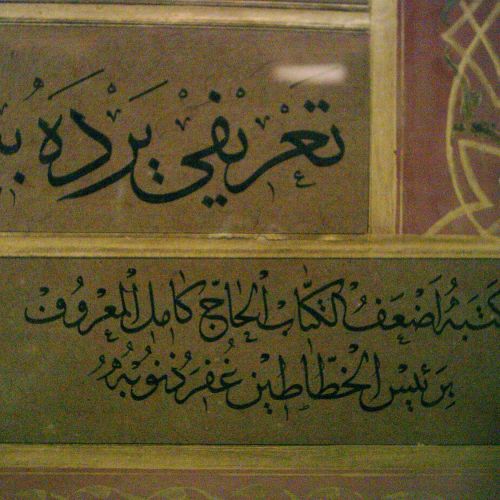 تَعْرِيفِي يَرْدَهْ
كَتَبَهُ اَضْعَفُ الكُتَّابِ الْحَاجّ كَامِل الْمَعْرُوفْ
بِرَئِيسِ الْخَطَّاطِين غُفِرَ ذُنُوبُهُ